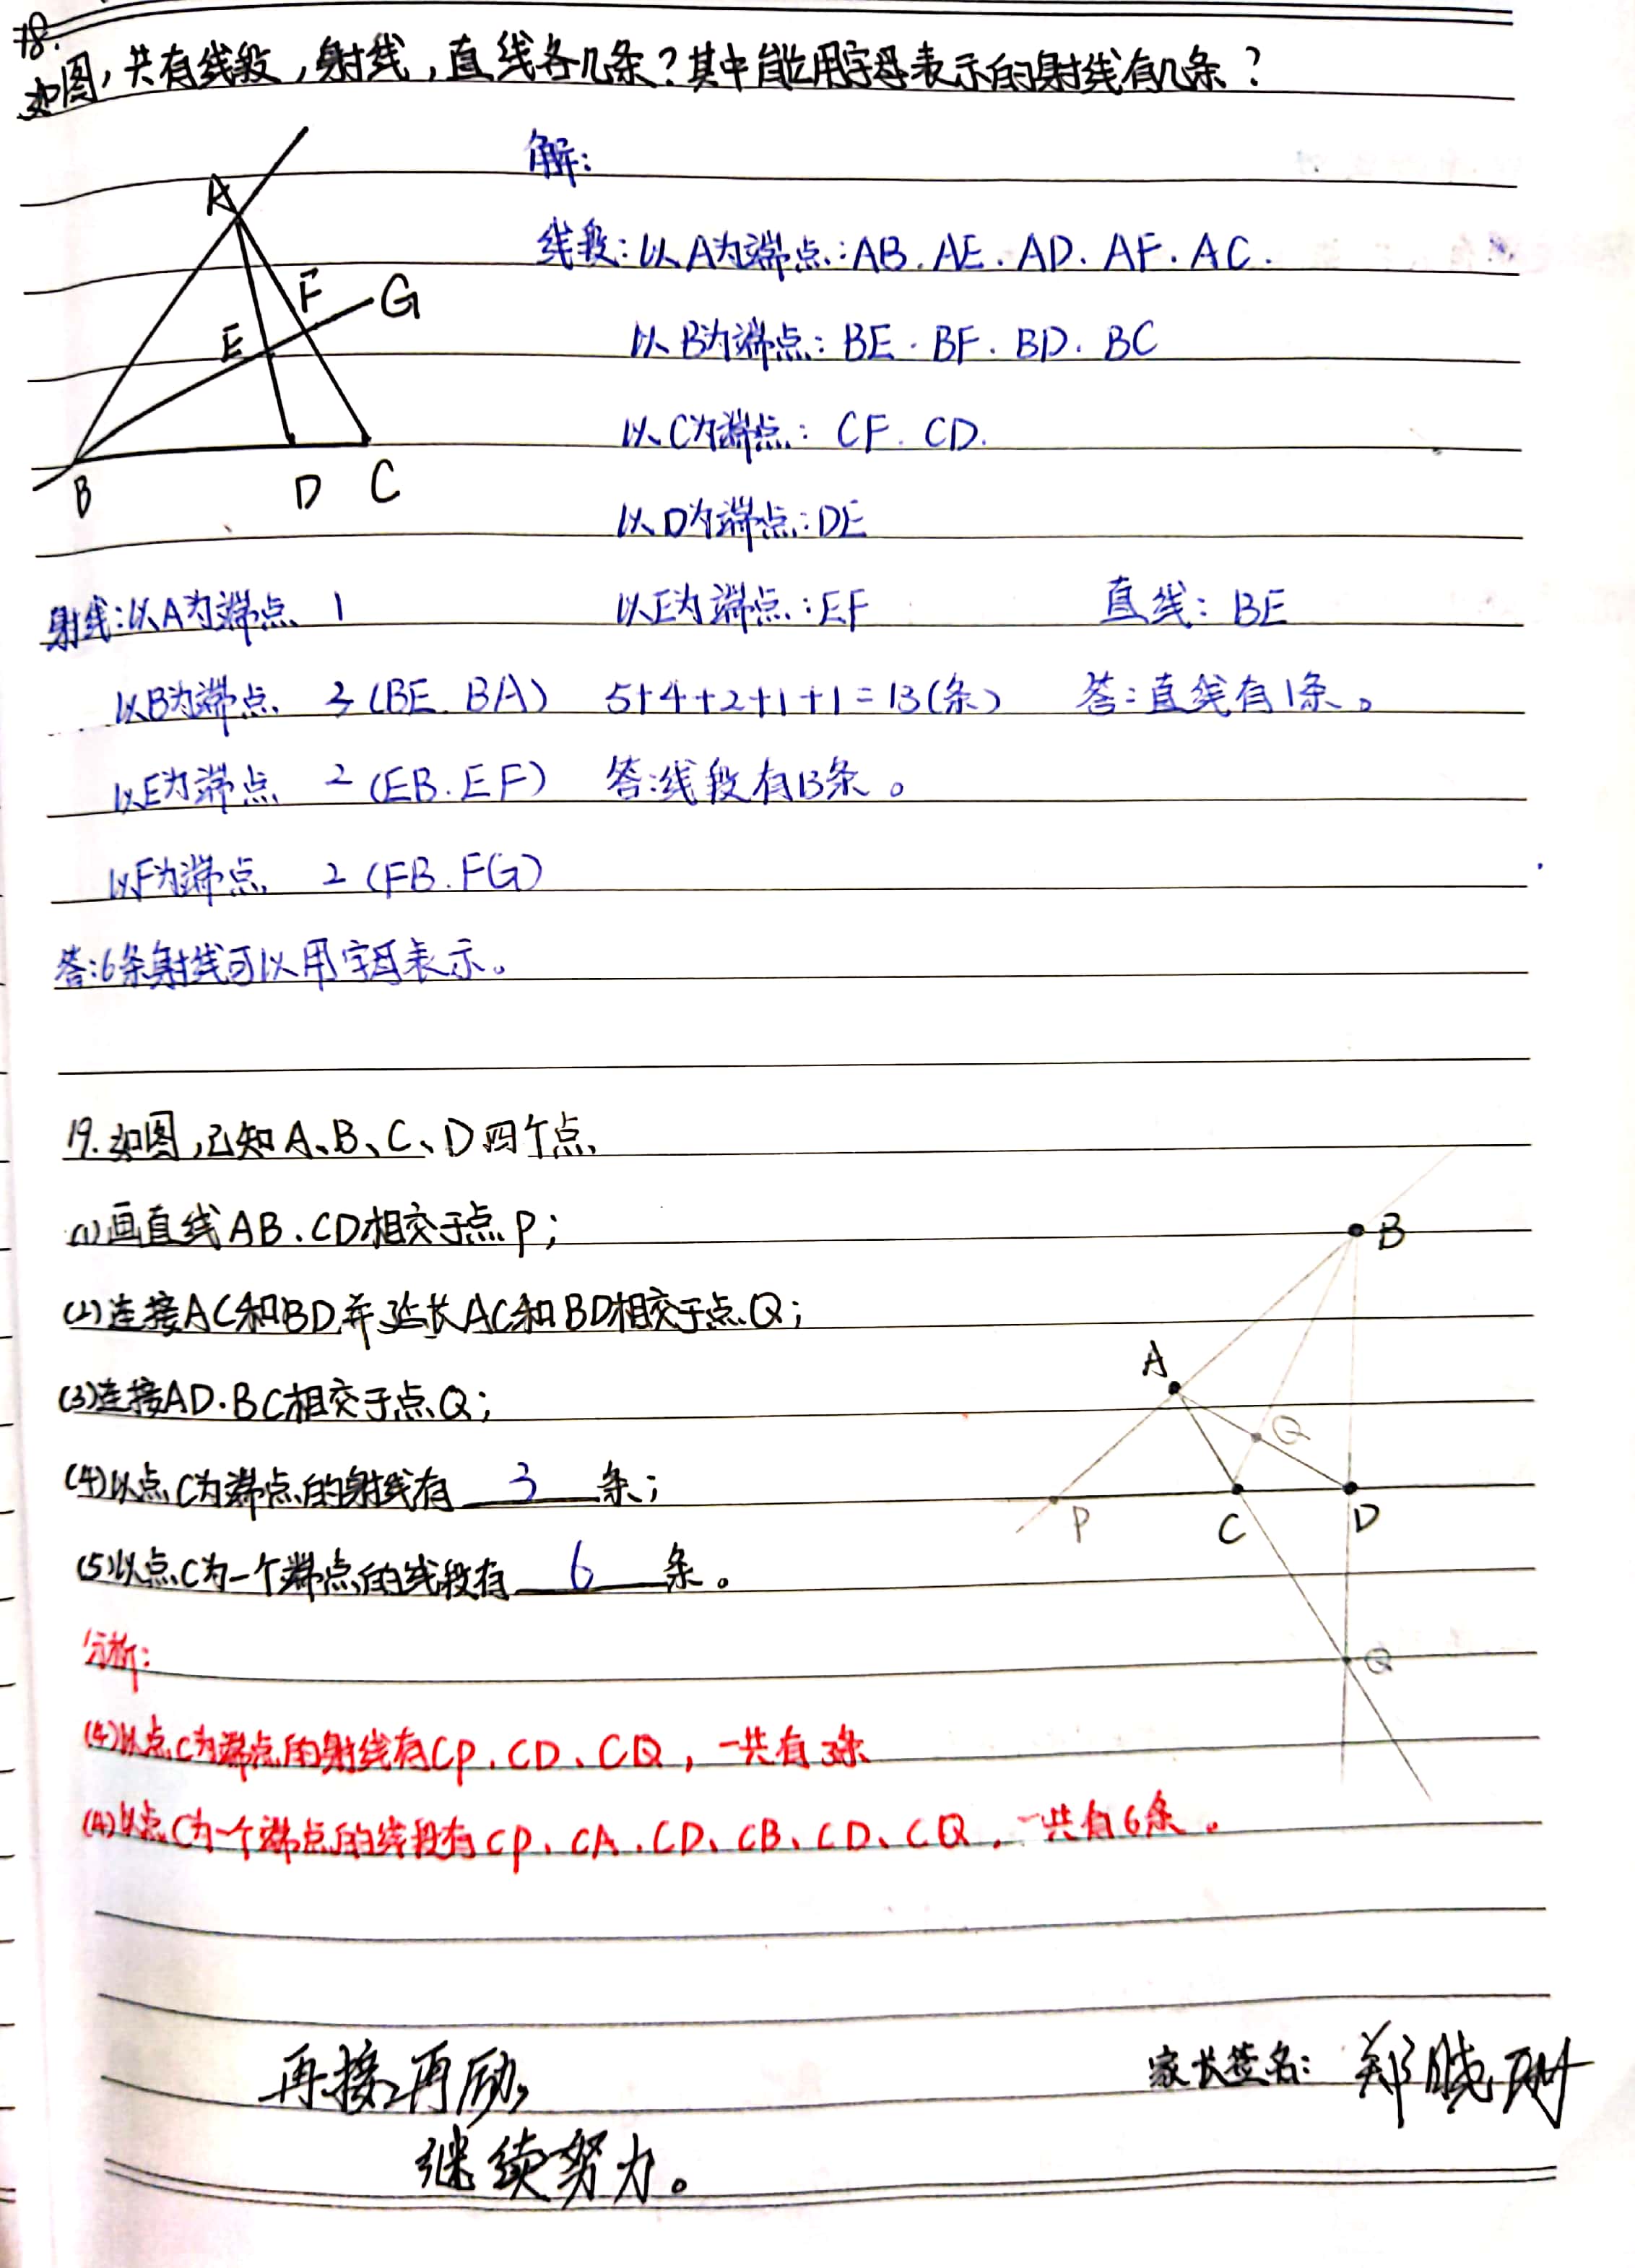 18.
如图,共有线段,射线,直线各几条?其中能用字母表示的射线有几条?
A
F
G
E
B
D
C
解:
线段:以A为端点:AB.AE.AD.AF.AC.
以B为端点:BE.BF.BD.BC
以C为端点:CF.CD.
以D为端点:DE
射线:以A为端点 1 以E为端点:EF 直线:BE
以B为端点 3(BE.BA) 5+4+2+1+1=13(条) 答:直线有1条。
以E为端点 2(EB.EF) 答:线段有13条。
以F为端点 2(FB.FG)
答:6条射线可以用字母表示。
19.如图,已知A、B、C、D四个点
(1)画直线AB.CD相交于点P;
(2)连接AC和BD并延长AC和BD相交于点Q;
(3)连接AD.BC相交于点Q;
(4)以点C为端点的射线有 3 条;
(5)以点C为一个端点的线段有 6 条。
B
A
Q
P
C
D
Q
分析:
(4)以点C为端点的射线有CP.CD、CQ,一共有3条
(4)以点C为一个端点的线段有CP、CA.CD、CB、CD、CQ,一共有6条。
再接再励
继续努力。
家长签名:郑晓珊